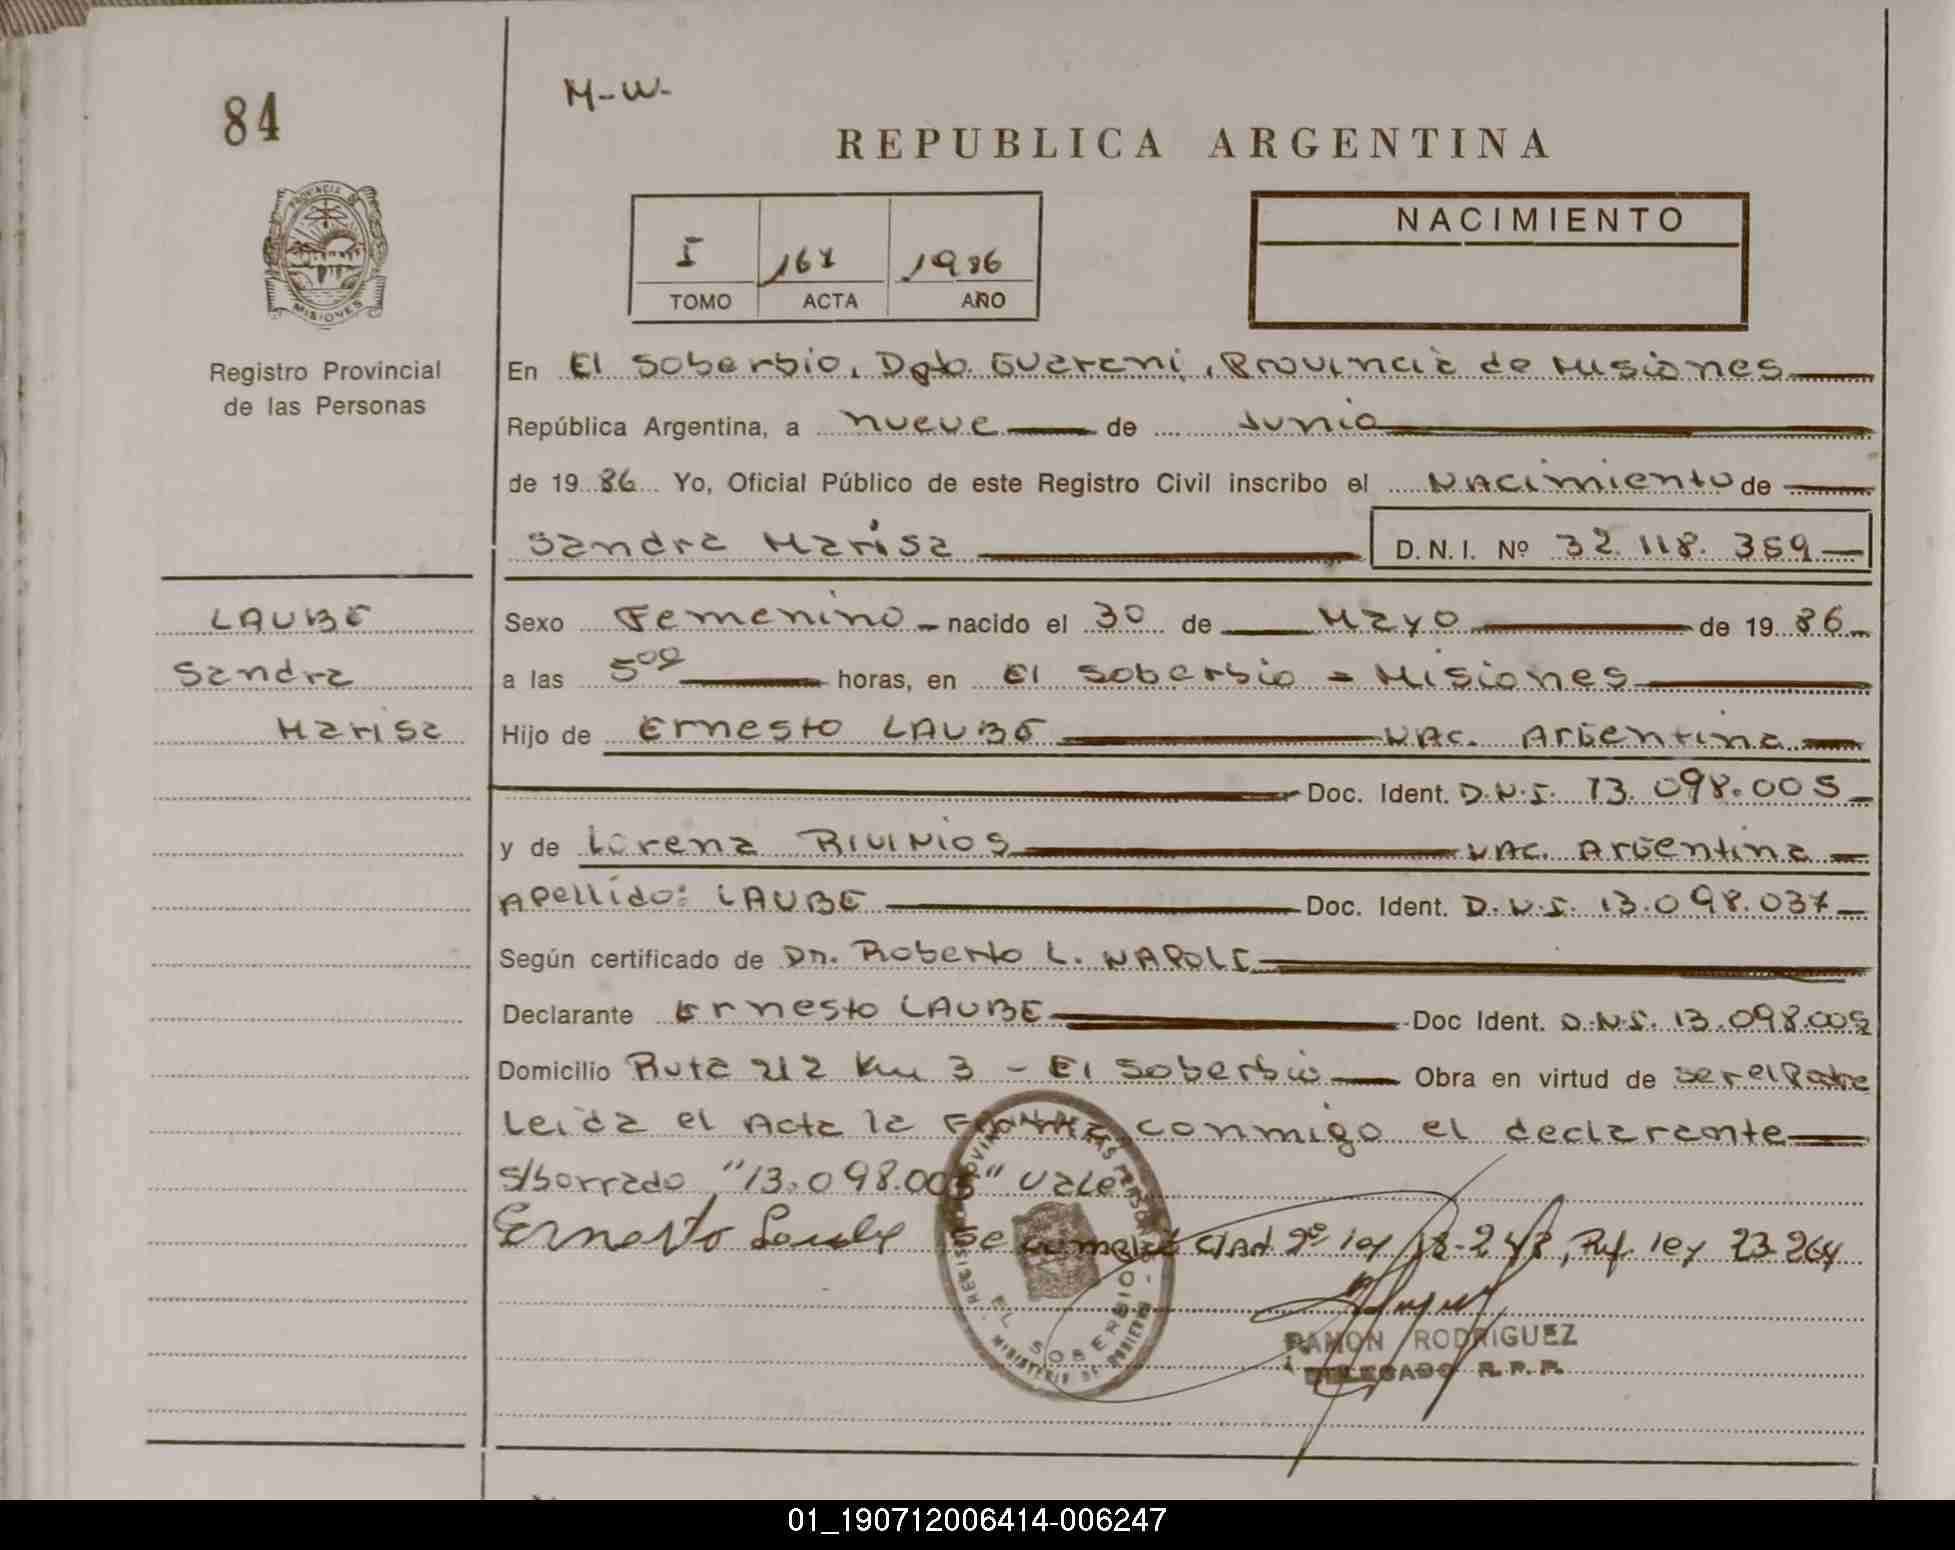 84
M-W-
REPUBLICA ARGENTINA
PROVINCIA DE
MISIONES
I 167 1986
TOMO ACTA AÑO
NACIMIENTO
Registro Provincial
de las Personas
En El Soberbio, Dpto. Guarani, Provincia de Misiones
República Argentina, a nueve de Junio
de 1986 Yo, Oficial Público de este Registro Civil inscribo el Nacimiento de
Sandra Marisa D.N.I. Nº 32.118.359
LAUBE
Sandra
Marisa
Sexo Femenino nacido el 30 de Mayo de 1986
a las 5 00 horas, en El Soberbio = Misiones
Hijo de Ernesto LAUBE NAC. Argentina
Doc. Ident. D.N.I. 13.098.005
y de Lorena RIVINIOS NAC. Argentina
Apellido: LAUBE Doc. Ident. D.N.I. 13.098.037
Según certificado de Dn. Roberto L. NAPOLI
Declarante Ernesto LAUBE Doc Ident. D.N.I. 13.098.005
Domicilio Ruta 212 Km 3 - El Soberbio Obra en virtud de ser el Padre
Leida el Acta la conmigo el declarante
s/borrado "13.098.005" Vale
Ernesto Laube Se Ley 18-248, Ref. ley 23-264
EL SOBERBIO
RAMON RODRIGUEZ
DELEGADO R.P.P.
01_190712006414-006247